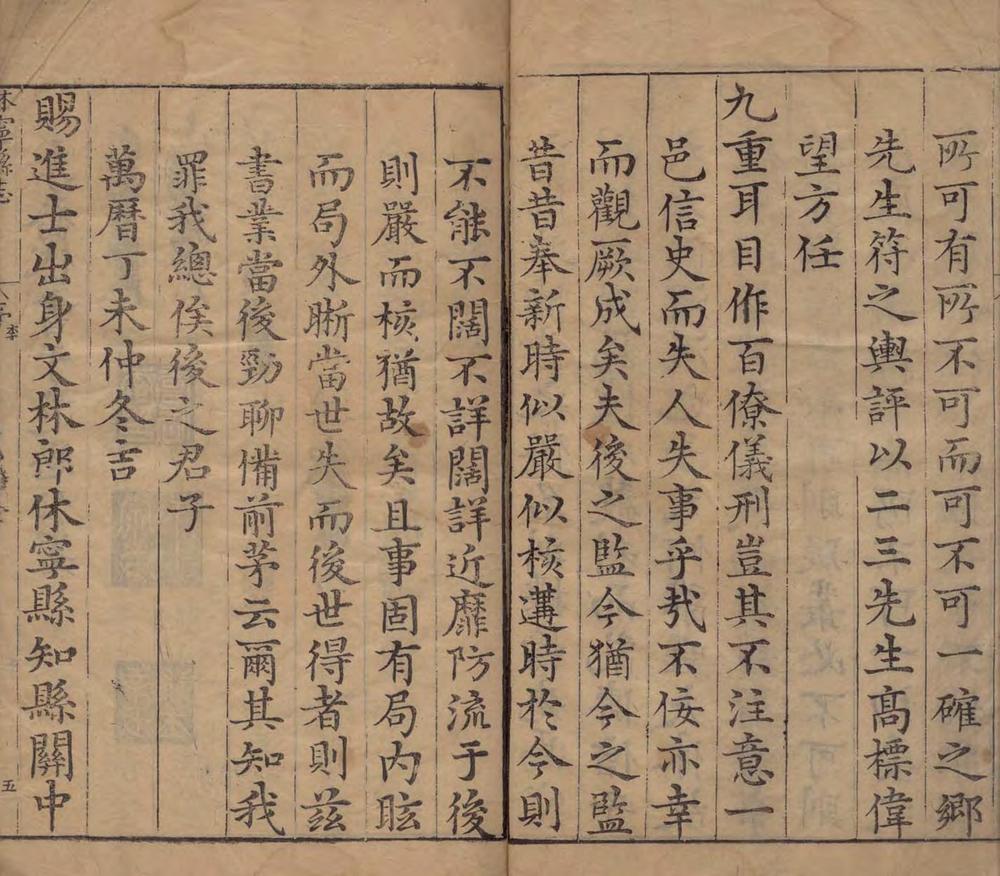 所可有所不可而可不可一確之鄉
先生符之輿評以二三先生高標偉
望方任
九重耳目作百僚儀刑豈其不注意一
邑信史而失人失事乎哉不佞亦幸
而觀厥成矣夫後之監今猶今之監
昔昔奉新時似嚴似核遘時於今則
不能不闊不詳闊詳近靡防流于後
則嚴而核猶故矣且事固有局內眩
而局外晰當世失而後世得者則茲
書業當後勁聊備前茅云爾其知我
罪我總俟後之君子
萬曆丁未仲冬吉
賜進士出身文林郎休寧縣知縣關中
休寧縣志
序
李
五